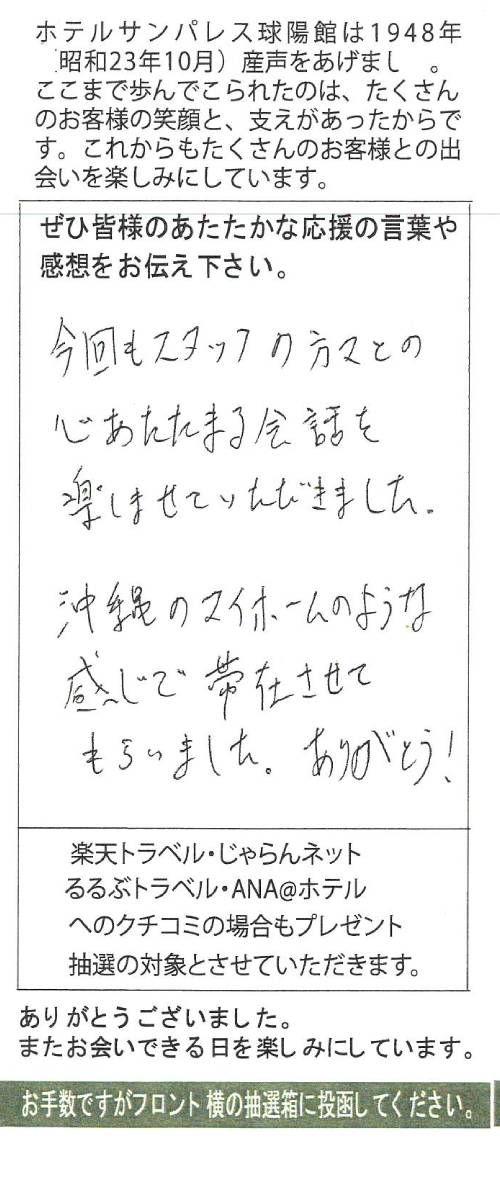 ホテルサンパレス球陽館は1948年
昭和23年10月）産声をあげまし 。
ここまで歩んでこられたのは、たくさん
のお客様の笑顔と、支えがあったからで
す。これからもたくさんのお客様との出
会いを楽しみにしています。
ぜひ皆様のあたたかな応援の言葉や
感想をお伝え下さい。
今回もスタッフの方々との
心あたたまる会話を
楽しませていただきました。
沖縄のマイホームのような
感じで帯在させて
もらいました。ありがとう!
楽天トラベル・じゃらんネット
るるぶトラベル・ANA@ホテル
へのクチコミの場合もプレゼント
抽選の対象とさせていただきます。
ありがとうございました。
またお会いできる日を楽しみにしています。
お手数ですがフロント横の抽選箱に投函してください。